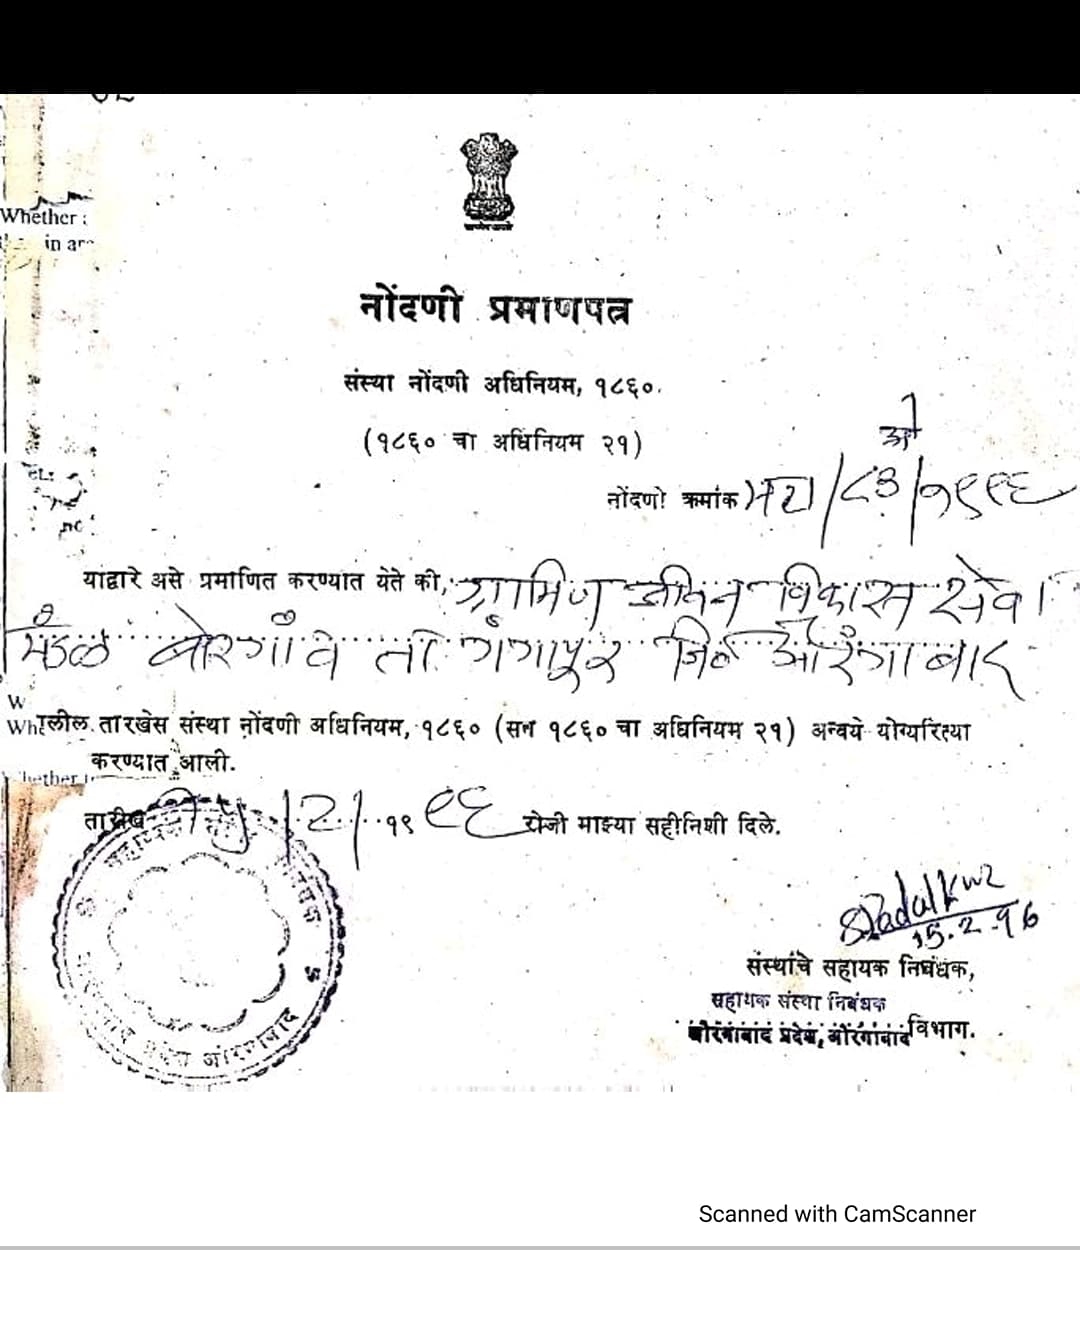 Whether
in ar
नोंदणी प्रमाणपत्र
संस्था नोंदणी अधिनियम, १८६०.
(१८६० चा अधिनियम २१)
औ
नोंदणी क्रमांक महा/८३/१९९६
याद्वारे असे प्रमाणित करण्यात येते की, ग्रामिण जीवन विकास सेवा
मंडळ बोरगाँव ता. गंगापूर जि. औरंगाबाद
W
Wh लील तारखेस संस्था नोंदणी अधिनियम, १८६० (सन १८६० चा अधिनियम २१) अन्वये योग्यरित्या
करण्यात आली.
hether
तारीख १५/२/१९९६ रोजी माझ्या सहीनिशी दिले.
15.2.96
संस्थांचे सहायक निबंधक,
सहायक संस्था निबंधक
औरंगाबाद प्रदेश, औरंगाबाद विभाग.
औरंगाबाद
Scanned with CamScanner